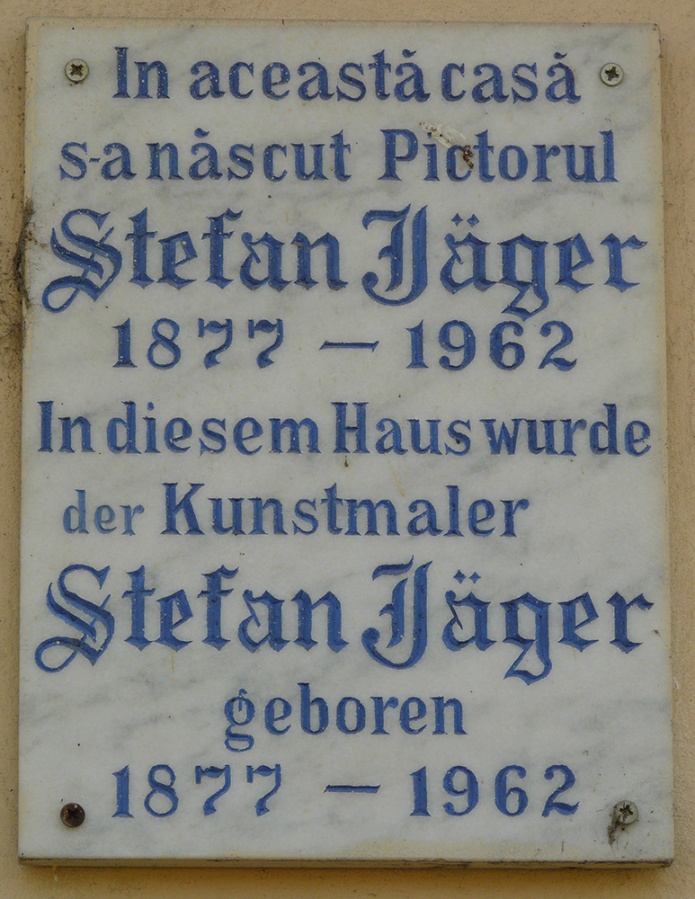 In această casă
s-a născut Pictorul
Stefan Jäger
1877 – 1962
In diesem Haus wurde
der Kunstmaler
Stefan Jäger
geboren
1877 – 1962